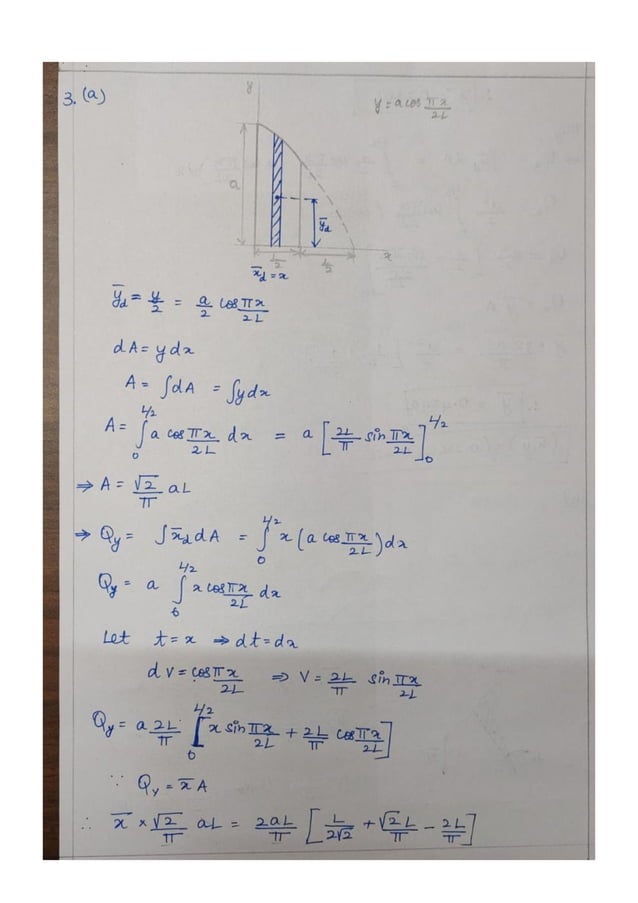 3. (a)
y
y = a cos πx/2L
a
ȳd
L/2 L/2
x
x̄d = x
ȳd = y/2 = a/2 cos πx/2L
dA = y dx
A = ∫dA = ∫y dx
A = ∫₀^{L/2} a cos πx/2L dx = a [2L/π sin πx/2L]₀^{L/2}
⇒ A = √2/π aL
⇒ Qy = ∫x̄d dA = ∫₀^{L/2} x (a cos πx/2L) dx
Qy = a ∫₀^{L/2} x cos πx/2L dx
Let t = x ⇒ dt = dx
dv = cos πx/2L ⇒ V = 2L/π sin πx/2L
Qy = a 2L/π [x sin πx/2L + 2L/π cos πx/2L]₀^{L/2}
∵ Qy = x̄ A
∴ x̄ × √2/π aL = 2aL/π [L/2√2 + √2L/π − 2L/π]